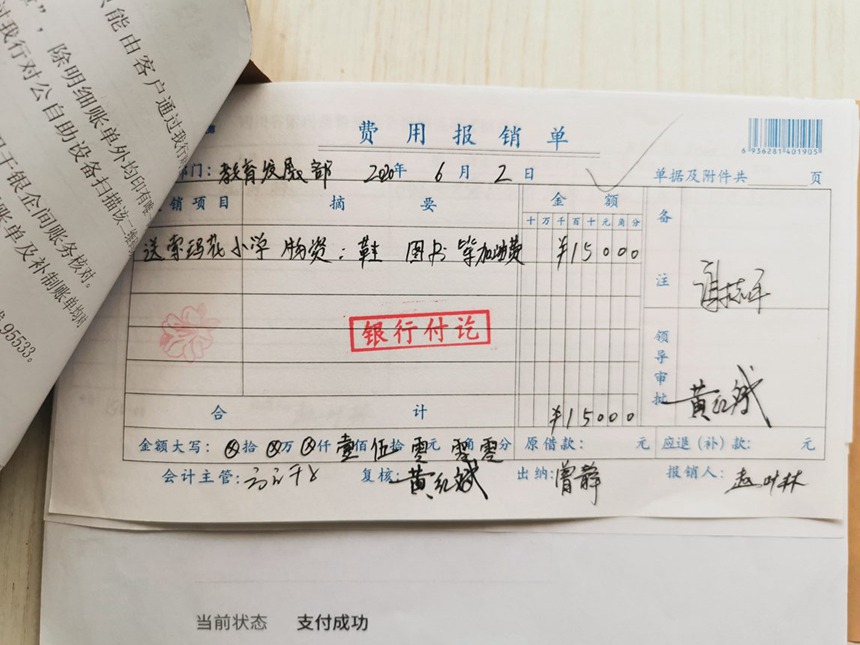 只能由客户通过我行
，除明细账单外均印有
过我行对公自助设备扫描该二维
用于银企间账务核对。
账单及补制账单均
95533。
费用报销单
6 936281 401905
部门：教育发展部 2020年 6月 2日
单据及附件共 页
销项目 摘要 金额 备注
十万千百十元角分
送索玛花小学 物资：鞋 图书 等加油费 ¥15000
银行付讫
领导审批 黄红斌
合计 ¥15000
金额大写：⊗拾⊗万⊗仟壹佰伍拾零元零角零分 原借款： 元 应退（补）款： 元
会计主管： 复核：黄红斌 出纳：曾静 报销人：赵叶林
当前状态 支付成功